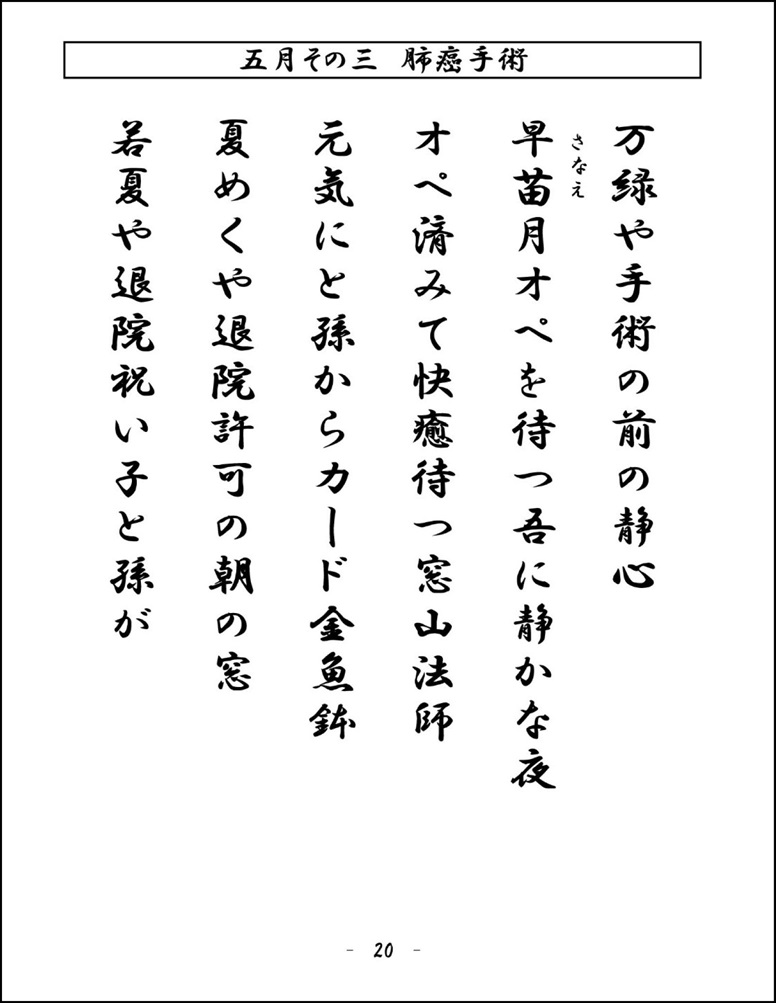 五月その三　肺癌手術
万緑や手術の前の静心
早苗月オペを待つ吾に静かな夜
さなえ
オペ済みて快癒待つ窓山法師
元気にと孫からカード金魚鉢
夏めくや退院許可の朝の窓
若夏や退院祝い子と孫が
- 20 -